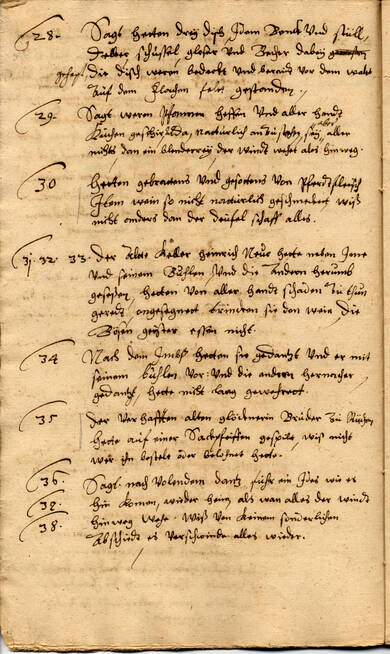 28. Sagt hetten drey disch, Item Benck Und stüll,
Deller schüssel, gleser und Becher dabey
die disch weren bedeckt und heraus vor dem walt
auf dem flachen felt gestanden.
29. Sagt weren Pfannen heffen Und aller handt
Kuchen geschir da, natürlich an zu sehen, sey aber alles
nichts dan ein blenderey der windt wehet ales hinweg.
30 hetten gebratens Und gesottens von Pferdtfleisch
Item wein so nicht natürlich geschmeckt wiß
nicht anders dan der deüfel schaff alles.
31. 32. 33. Der Alte Keller heinrich Neur hette neben Ime
Und seinem Buhlen Und die Andern herumb
gesessen, hetten Von aller handt schaden zu thun
geredt, ungesegnet trincken sie den wein die
Bösen geister essen nicht.
34 Nach dem Imbß hetten sie gedantzt Und er mit
seinem buhlen vor: Und die andern hernacher
gedantzt, hette nicht lang gewehret.
35 der verhafften alten glöcknerin Bruder zu
hette auf einer Sackpfeiffen gespielt, wiß nicht
wer ihn bestelt oder belohnet hette.
36. Sagt, nach Volendem dantz, fuhr ein Jdes wie es
37. hin komen, wieder heim, als wan alles der windt
38. hinweg wehe. Wiß von keinem sonderlichen
Abschiedt es verschwinde alles wieder.